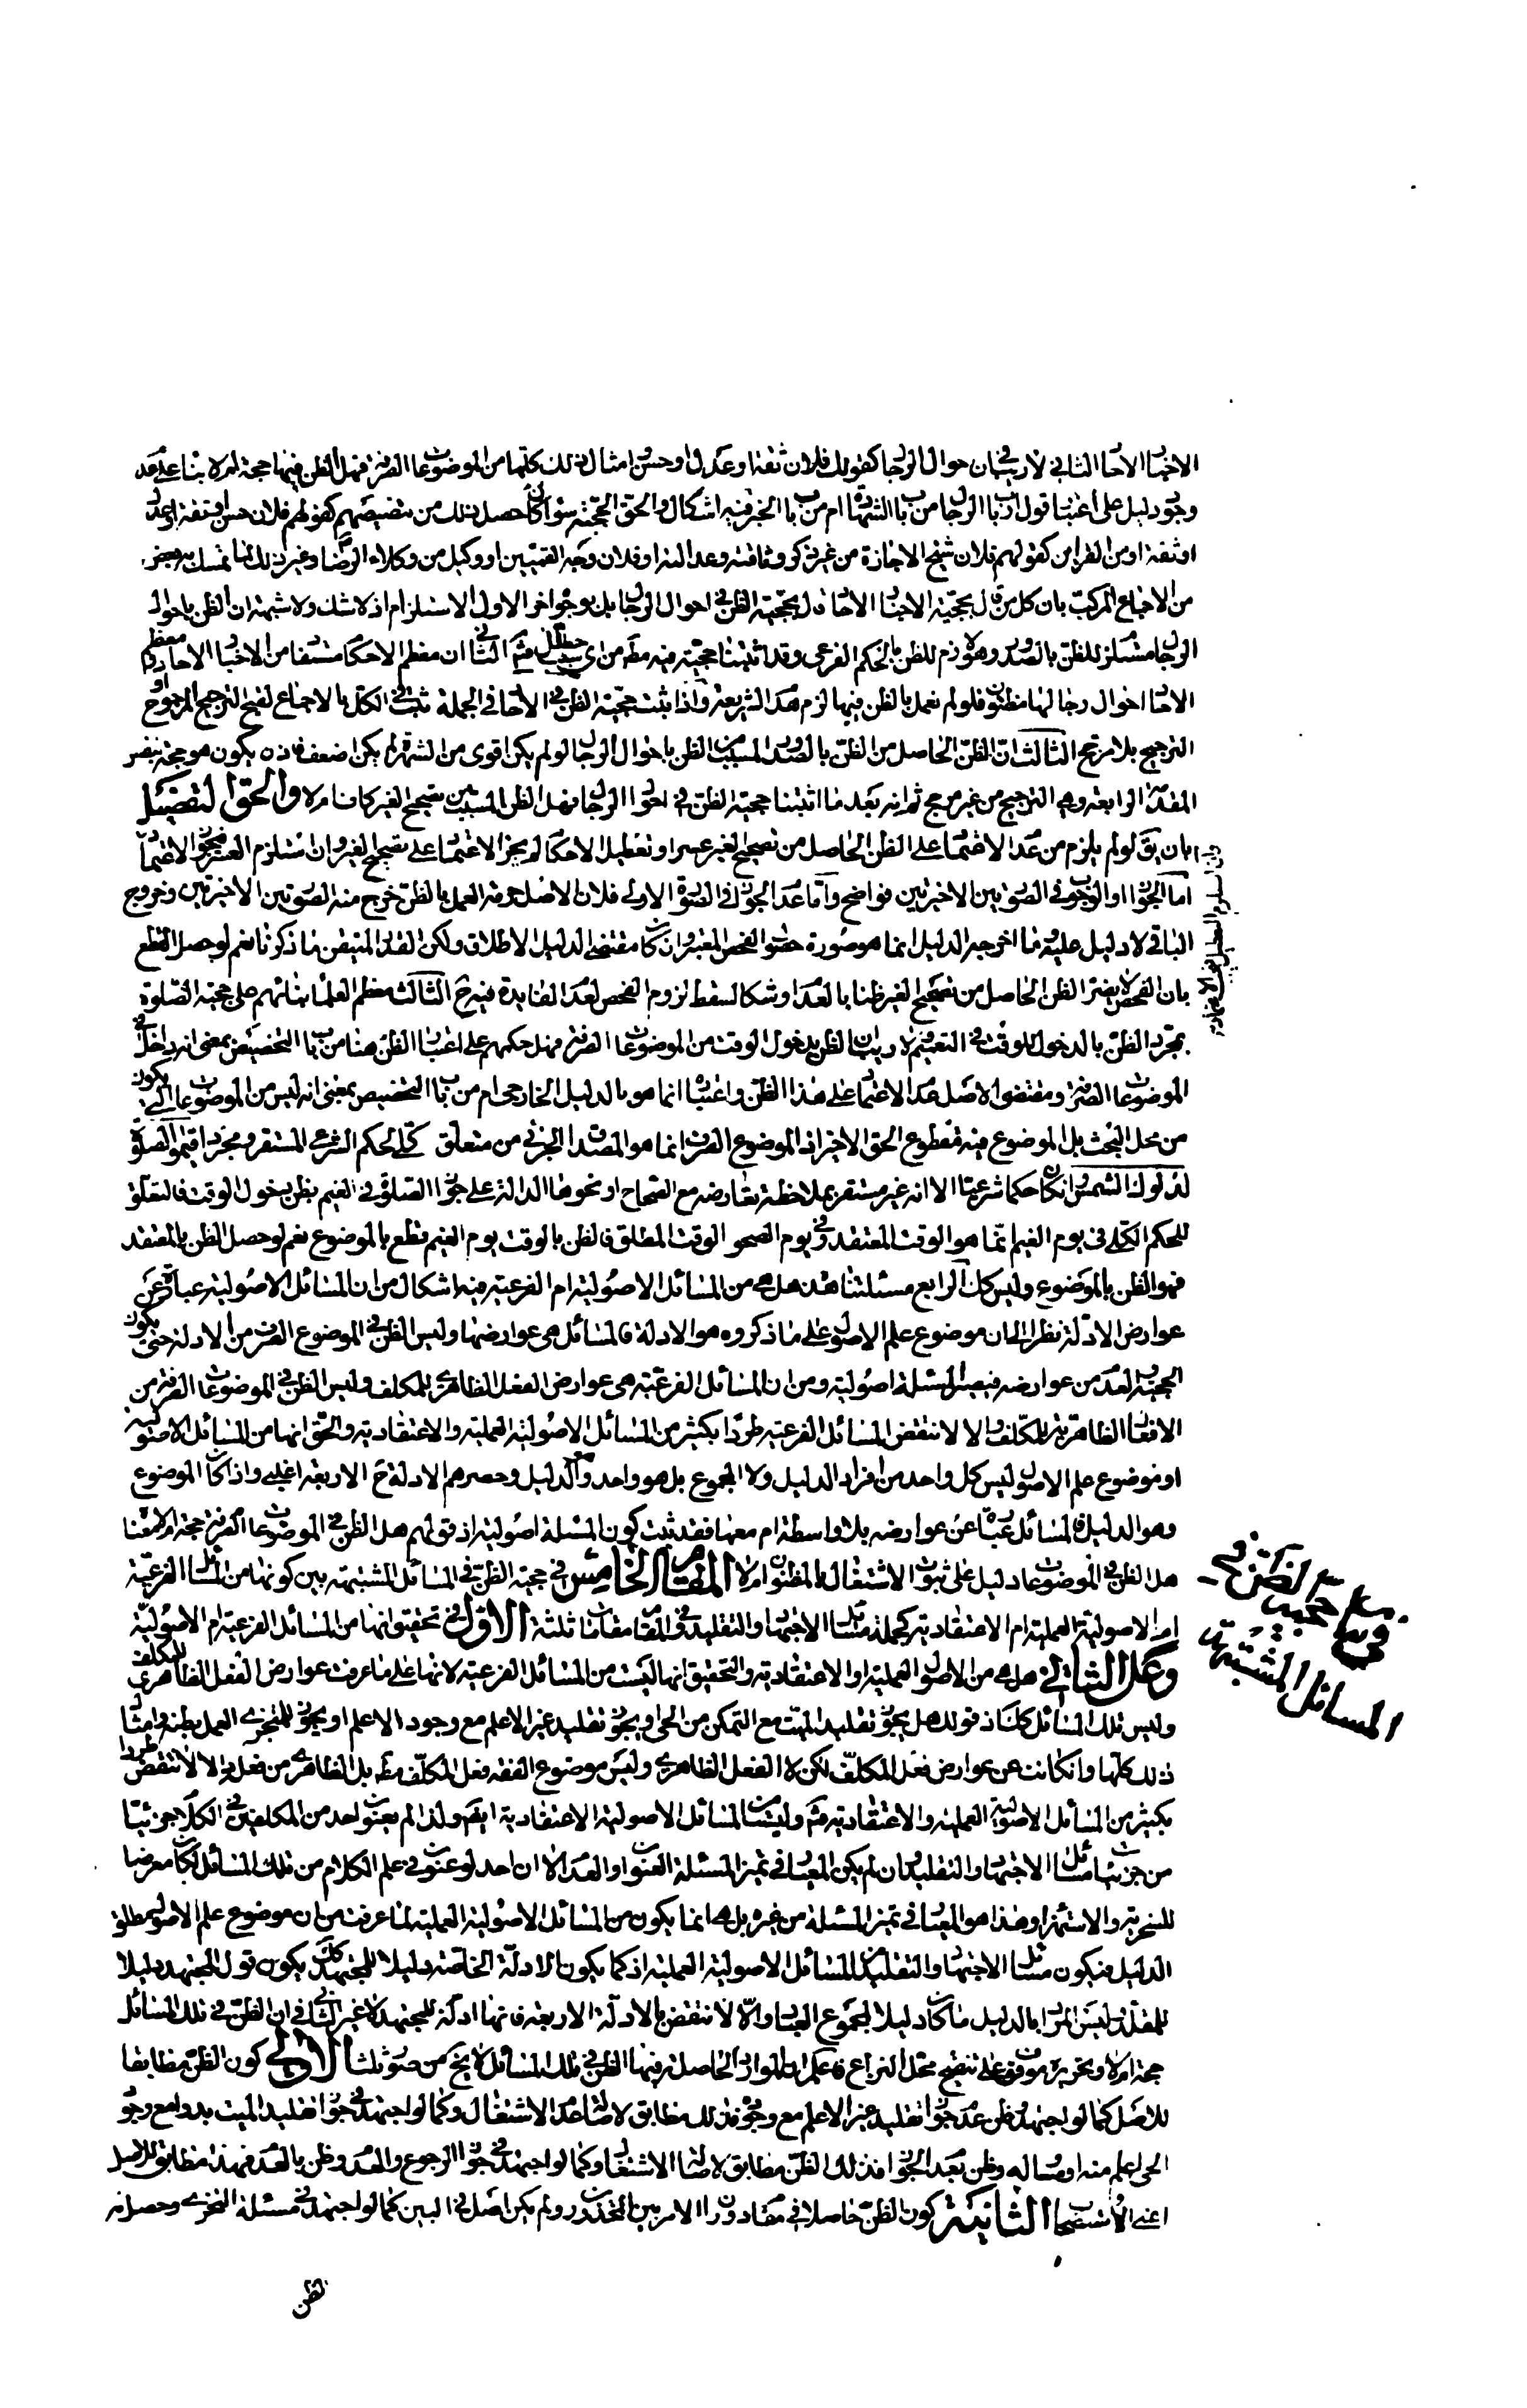 الاخبار الاحاد الثانى لا ريب فى ان حوال الرجال كقولك فلان ثقة او عدل او حسن امثال ذلك كلها من الموضوعات الصرفة فهل الظن فيها حجة ام لا بناء على عدم
وجود دليل على اعتبار قول ارباب الرجال من باب الشهادة ام من باب الخبر فيه اشكال والحق الحجية سواء كان حصل ذلك من تنصيصهم كقولهم فلان حسن او ثقة او عدل
او ثقة او من القراين كقولهم فلان شيخ الاجازة من غير ذكر وثاقته وعدالته او فلان وجه القميين او وكيل من وكلاء الرضا وغير ذلك لنا
من الاجماع المركب بان كل من قال بحجية الاخبار الاحاد قال بحجية الظن فى احوال الرجال بل بوجه اخر الاول الاستلزام اذ لا شك ولا شبهة ان الظن باحوال
الرجال مستلزم للظن بالصدور وهو لازم للظن بالحكم الفرعى وقد اثبتنا حجية فيه مط من اى سبب حصل الثانى ان معظم الاحكام مستفاد من الاخبار الاحاد ومعظم
الاحاد احوال رجالها مظنون فلو لم نعمل بالظن فيها لزم هدم الشريعة واذا ثبت حجية الظن فى الاحاد فى الجملة ثبت فى الكل بالاجماع لقبح الترجيح المرجوح او
الترجيح بلا مرجح الثالث ان الظن الحاصل من الظن بالصدور المسبب من الظن باحوال الرجال لو لم يكن اقوى من الشهرة لم يكن اضعف
المقدمة الرابعة وهى الترجيح من غير مرجح ثم انه بعد ما اثبتنا حجية الظن فى احوال الرجال فهل الظن المسبب من تصحيح الغير كاف ام لا والحق التفصيل
بان يق لو لم يلزم من عدم الاعتماد على الظن الحاصل من تصحيح الغير عسر او تعطيل الاحكام لم يجز الاعتماد على تصحيح الغير وان استلزم العسر فيجوز الاعتماد
اما الجواز او الوجوب فى الصورتين الاخيرتين فواضح واما عدم الجواز فى الصورة الاولى فلان الاصل حرمة العمل بالظن خرج منه الصورتين الاخيرتين وخروج
الباقى لا دليل عليه لان ما اخرجه الدليل انما هو صورة حصول الفحص المعتبر وان كان مقتضى الدليل الاطلاق ولكن القدر المتيقن ما ذكرنا نعم لو حصل القطع
بان الفحص لا يضر الظن الحاصل من تصحيح الغير ظنا بالعدم او شكا لسقط لزوم الفحص لعدم الفايدة فيه ح الثالث معظم العلماء بنائهم على حجية الصلوة
بمجرد الظن بالدخول للوقت فى الغيم ولا ريب ان الظن بدخول الوقت من الموضوعات الصرفة فهل حكمهم على اعتبار الظن هنا من باب التخصيص بمعنى انه داخل فى
الموضوعات الصرفة ومقتضى الاصل عدم الاعتماد على هذا الظن واعتباره انما هو بالدليل الخارجى ام من باب التخصص بمعنى انه ليس من الموضوعات التى يكون
من محل البحث بل الموضوع فيه مقطوع الحق الاخير اذ الموضوع الصرف انما هو المصداق الجزئى من متعلق كلى الحكم الشرعى المستقر ومجرد اقيموا الصلوة
لدلوك الشمس ان كان حكما شرعيا الا انه غير مستقر بملاحظة تعارضه مع الصحاح او نحوها الدالة على جواز الصلوة فى الغيم بظن دخول الوقت فالمتعلق
للحكم الكلى فى يوم الغيم انما هو الوقت المعتقد وفى يوم الصحو الوقت المطلق فالظن بالوقت يوم الغيم قطع بالموضوع نعم لو حصل الظن بالمعتقد
فهو الظن بالموضوع وليس كك الرابع مسئلتنا هذه هل هى من المسائل الاصولية ام الفرعية فيه اشكال من ان المسائل الاصولية عبارة عن
عوارض الادلة نظرا الى ان موضوع علم الاصول على ما ذكروه هو الادلة فالمسائل هى عوارضها وليس الظن فى الموضوع الصرف من الادلة حتى يكون
الحجية والعدم من عوارضه فيصير المسئلة اصولية ومن ان المسائل الفرعية هى عوارض الفعل الظاهرى للمكلف وليس الظن فى الموضوعات الصرفة من
الافعال الظاهرية للمكلف والا لانتقض المسائل الفرعية طردا بكثير من المسائل الاصولية العملية والاعتقادية والحق انها من المسائل الاصولية
او موضوع علم الاصول ليس كل واحد من افراد الدليل ولا المجموع بل هو واحد وهو الدليل وحصرهم الادلة ح الاربعة اغلبى واذا كان الموضوع
وهو الدليل فالمسائل عبارة عن عوارضه بلا واسطة ام معها فقد ثبت كون المسئلة اصولية اذ قولهم هل الظن فى الموضوعات الصرفة حجة ام لا معناه
هل الظن فى الموضوعات دليل على ثبوت الاشتغال بالمظنون ام لا المقام الخامس فى حجية الظن فى المسائل المشتبهة بين كونها من المسائل الفرعية
ام الاصولية العملية ام الاعتقادية كجملة مسائل الاجتهاد والتقليد وفى المقام مقامات ثلثة الاول فى تحقيق انها من المسائل الفرعية ام الاصولية
وعلى الثانى هل هى من الاصول العملية او الاعتقادية والتحقيق انها ليست من المسائل الفرعية لانها على ما عرفت عوارض الفعل الظاهرى للمكلف
وليس تلك المسائل كك اذ قولك هل يجوز تقليد الميت مع التمكن من الحى ويجوز تقليد غير الاعلم مع وجود الاعلم او يجوز للمتجزى العمل بظنه وامثال
ذلك كلها وان كانت عن عوارض فعل المكلف لكن لا الفعل الظاهرى وليس موضوع الفقه فعل المكلف مط بل الظاهرى من فعله والا لانتقض طردا
بكثير من المسائل الاصولية العملية والاعتقادية وليست من المسائل الاصولية الاعتقادية ايضا ولذا لم يعنون احد من المكلمين فى الكلام جزئيا
من جزئيات مسائل الاجتهاد والتقليد وان لم يكن المعيار فى تميز المسئلة العنوان او العدم الا ان احد لو عنون فى علم الكلام من تلك المسائل لكان معرضا
للسخرية والاستهزاء وهذا هو المعيار فى تميز المسئلة من غيره بل هى انما يكون من المسائل الاصولية العملية لما عرفت من ان موضوع علم الاصول مطلق
الدليل فيكون مسائل الاجتهاد والتقليد من المسائل الاصولية العملية اذ كما يكون الادلة الخاصة دليلا للمجتهد كك يكون قول المجتهد دليلا
للمقلد وليس المراد بالدليل ما كان دليلا لجميع العباد والا لانتقض بالادلة الاربعة فانها ادلة للمجتهد لا غير الثانى فى ان الظن فى تلك المسائل
حجة ام لا وتحريره موقوف على تنقيح محل النزاع فاعلم ان الموارد الحاصلة فيها الظن فى تلك المسائل لا يخ من صور ثلث الاولى كون الظن مطابقا
للاصل كما لو اجتهد وظن عدم جواز تقليد غير الاعلم مع وجوده فذلك مطابق لاصالة عدم الاشتغال وكما لو اجتهد فى جواز تقليد الميت بدوا مع وجود
الحى اعلم منه او مساله وظن بعدم الجواز فذلك الظن مطابق لاصالة الاشتغال وكما لو اجتهد فى جواز الرجوع والعدم وظن بالعدم فهذا مطابق للاصل
اعنى الاستصحاب الثانية كون الظن حاصلا فى مقام دوران الامر بين المحذورين ولم يكن اصل فى البين كما لو اجتهد فى مسئلة التجزى وحصل له
الظن
فى حجية الظن فى
المسائل المشتبهة